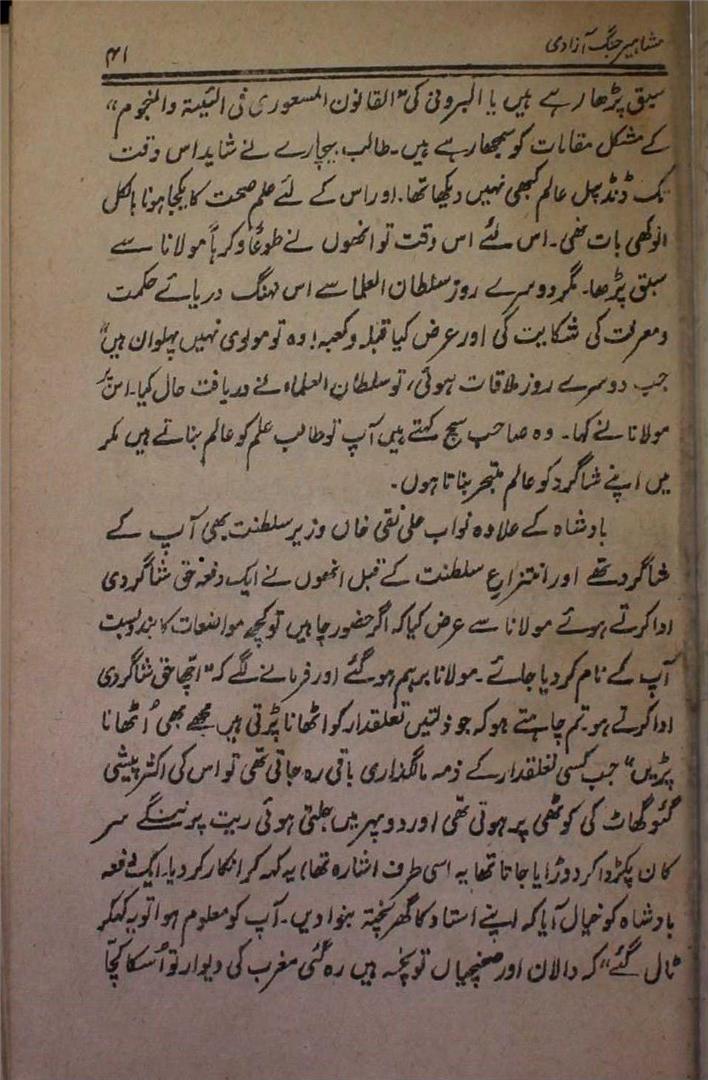 مشاہیر جنگ آزادی
۴۱
سبق پڑھا رہے ہیں یا البرونی کی "القانون المسعوری فی الئیتہ والنجوم"
کے مشکل مقامات کو سمجھا رہے ہیں۔ طالب بیچارے نے شاید اس وقت
تک ڈنڈ پیل عالم کبھی نہیں دیکھا تھا۔ اور اس کے لئے علم صحت کا یکجا ہونا بالکل
انوکھی بات تھی۔ اس لئے اس وقت تو انھوں نے طوعًا وکرہاً مولانا سے
سبق پڑھا۔ مگر دوسرے روز سلطان العلما سے اس نہنگ دریائے حکمت
ومعرفت کی شکایت کی اور عرض کیا قبلہ وکعبہ! وہ تو مولوی نہیں پہلوان ہیں"
جب دوسرے روز ملاقات ہوئی، تو سلطان العلماء نے دریافت حال کیا۔ اس پر
مولانا نے کہا۔ وہ صاحب سچ کہتے ہیں آپ تو طالب علم کو عالم بناتے ہیں مگر
میں اپنے شاگرد کو عالم متبحر بناتا ہوں۔
بادشاہ کے علاوہ نواب علی نقی خاں وزیر سلطنت بھی آپ کے
شاگرد تھے اور انتزاعِ سلطنت کے قبل انھوں نے ایک دفعہ حق شاگردی
ادا کرتے ہوئے مولانا سے عرض کیا کہ اگر حضور چاہیں تو کچھ مواضعات کا بندوبست
آپ کے نام کر دیا جائے۔ مولانا برہم ہو گئے اور فرمانے لگے کہ "اچھا حق شاگردی
ادا کرتے ہو۔ تم چاہتے ہو کہ جو ذلتیں تعلقدار کو اٹھانا پڑتی ہیں مجھے بھی اُٹھانا
پڑیں" جب کسی تعلقدار کے ذمہ مالگذاری باقی رہ جاتی تھی تو اس کی اکثر پیشی
گئو گھاٹ کی کوٹھی پر ہوتی تھی اور دوپہر میں جلتی ہوئی ریت پر ننگے سر
کان پکڑوا کر دوڑایا جاتا تھا یہ اسی طرف اشارہ تھا) یہ کہہ کر انکار کر دیا۔ ایک دفعہ
بادشاہ کو خیال آیا کہ اپنے استاد کا گھر پختہ بنوا دیں۔ آپ کو معلوم ہوا تو یہ کہکر
ٹال گئے" کہ دالان اور صحنچیاں تو پختہ ہیں رہ گئی مغرب کی دیوار تو اُسکا کچّا